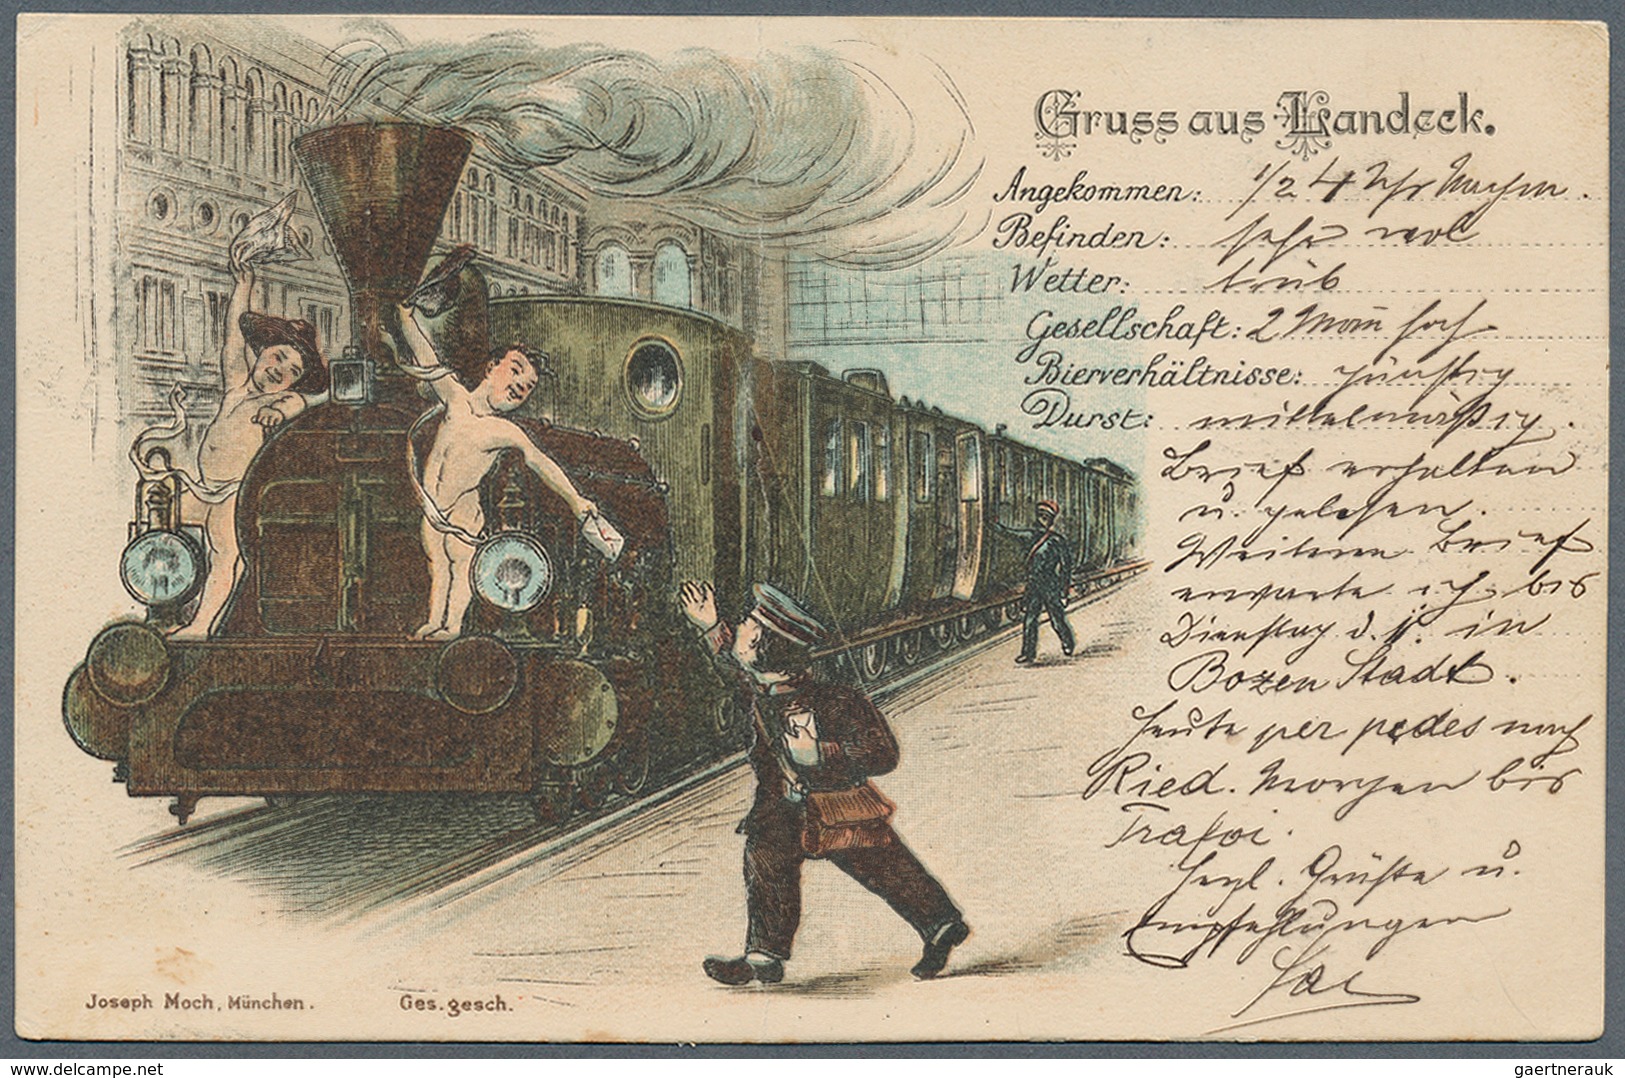 Gruss aus Landeck.
Angekommen: 1/2 4 Uhr Nachm.
Befinden: sehr wol
Wetter: trüb
Gesellschaft: 2 Mann hoch
Bierverhältnisse: günstig
Durst: mittelmäßig.
Brief erhalten
u. gelesen.
Weiteren Brief
erwarte ich bis
Dienstag d. 11. in
Bozen Stadt.
Heute per pedes nach
Ried. Morgen bis
Trafoi.
Herzl. Grüße u.
Empfehlungen
Joseph Moch, München. Ges. gesch.
delcampe.net gaertnerauk